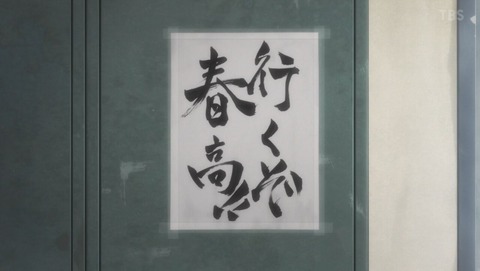 行くぞ
春高
TBS